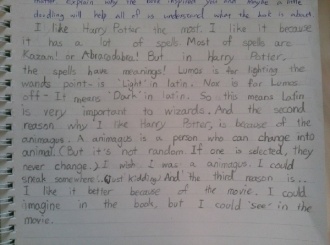 matter. Explain why the book inspired you and maybe a little
doodling will help all of us understand what the book is about.
I like Harry Potter the most. I like it because
it has a lot of spells Most of spells are
Kazam! or Abracadabra! But in Harry Potter,
the spells have meanings! Lumos is for lighting the
wands point- is 'Light' in latin. Nox is for Lumos
off- It means 'Dark' in latin. So this means Latin
is very important to wizards. And the second
reason why I like Harry Potter, is because of the
animagus. A animagus is a person who can change into
animal. (But it's not random. If one is selected, they
never change.) I wish I was a animagus. I could
sneak somewhere... (Just kidding) And the third reason is...
I like it better because of the movie. I could
imagine in the book, but I could 'see' in the
movie.